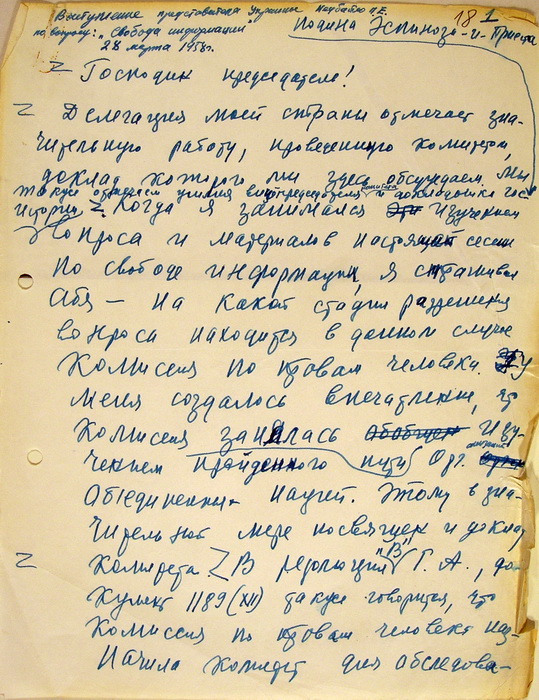 Выступление представителя Украины Недбайло П.Е.
по вопросу: "Свобода информации"
28 марта 1958г.
18 1
иодина Эспиноза-и-Приета
Z Господин председатель!
Z Делегация моей страны отмечает зна-
чительную работу, проведенную комитетом,
доклад которого мы здесь обсуждаем. Мы
также отмечаем усилия вицепредседателя и докладчика гос.
Z Когда я занимался изучением
вопроса и материалов настоящей сессии
по свободе информации, я спрашивал
себя — на какой стадии разрешения
вопроса находится в данном случае
Комиссия по правам человека. У
меня создалось впечатление, что
Комиссия занялась изу-
чением пройденного пути Орг.
Объединенных наций. Этому в зна-
чительной мере посвящен и доклад
Z Комитета. Z В резолюции "В" Г. А., до-
кумент 1189 (XII) также говорится, что
Комиссия по правам человека наз-
начила комитет для обследова-